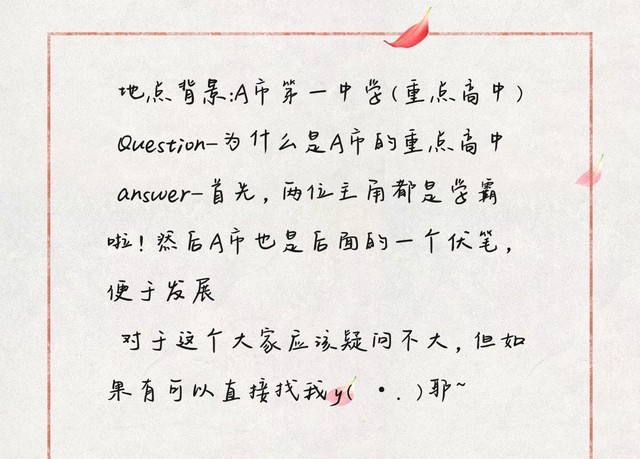 地点背景:A市第一中学(重点高中)
Question-为什么是A市的重点高中
answer-首先，两位主角都是学霸
啦！然后A市也是后面的一个伏笔，
便于发展
对于这个大家应该疑问不大，但如
果有可以直接找我y( •. )耶~